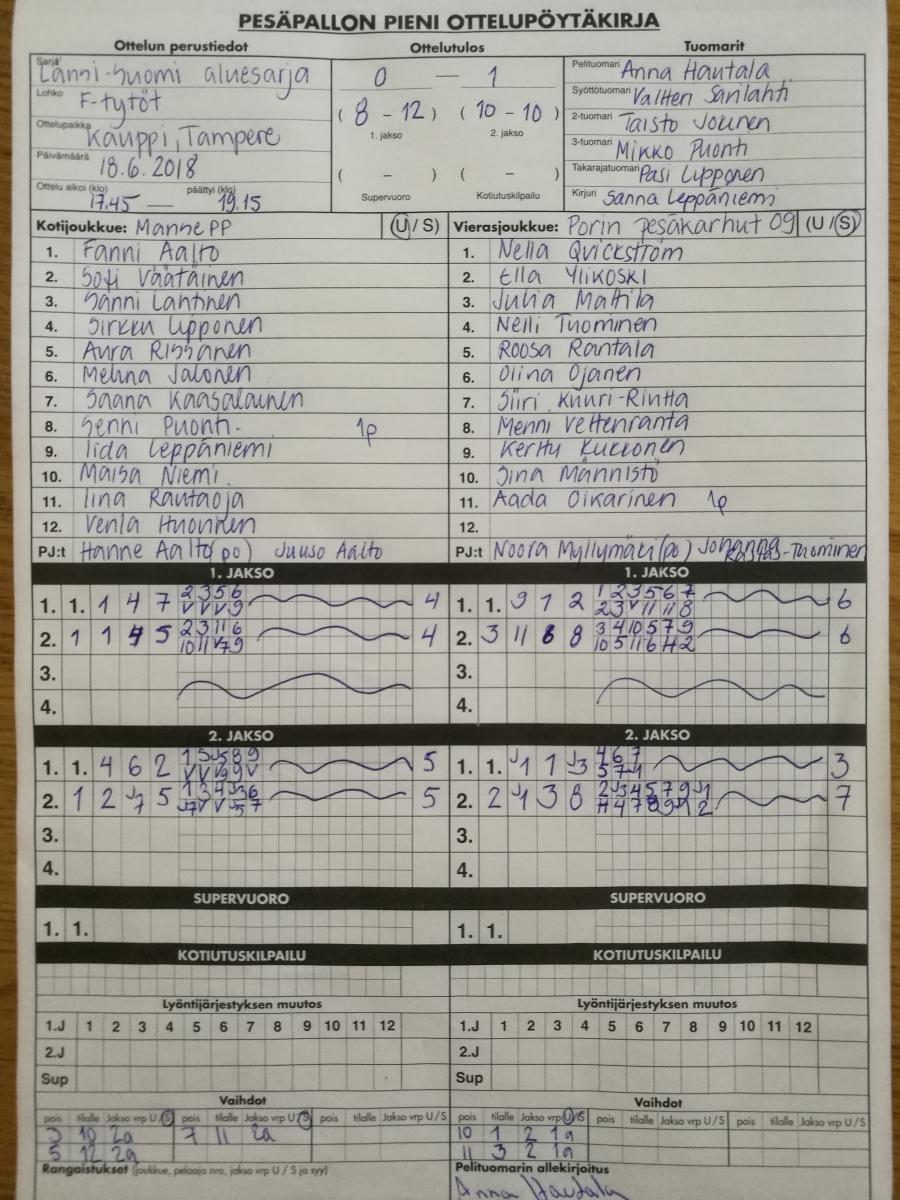 PESÄPALLON PIENI OTTELUPÖYTÄKIRJA
Ottelun perustiedot Ottelutulos Tuomarit
Sarja Länni-Suomi aluesarja
Lohko F-tytöt
Ottelupaikka Kauppi, Tampere
Päivämäärä 18.6.2018
Ottelu alkoi (klo) päättyi (klo)
17.45 — 19.15
0 — 1
( 8 - 12 ) ( 10 - 10 )
1. jakso 2. jakso
( - ) ( - )
Supervuoro Kotiutuskilpailu
Pelituomari Anna Hautala
Syöttötuomari Valtteri Sanlahti
2-tuomari Taisto Jounen
3-tuomari Mikko Puonti
Takarajatuomari Pasi Lipponen
Kirjuri Sanna Leppäniemi
Kotijoukkue: Manne PP (U / S)
1. Fanni Aalto
2. Sofi Väätäinen
3. Sanni Lahtinen
4. Sirkku Lipponen
5. Aura Rissanen
6. Melina Jalonen
7. Saana Kaasalainen
8. Senni Puonti 1p
9. Iida Leppäniemi
10. Maisa Niemi
11. Iina Rautaoja
12. Venla Huovinen
PJ:t Hanne Aalto (po) Juuso Aalto
Vierasjoukkue: Porin pesäkarhut 09 (U / S)
1. Nella Qvickström
2. Ella Ylikoski
3. Julia Mattila
4. Nelli Tuominen
5. Roosa Rantala
6. Olina Ojanen
7. Siiri Knuuri-Rintta
8. Menni Vettenranta
9. Kerttu Kukkonen
10. Sina Männistö
11. Aada Oikarinen 1p
12.
PJ:t Noora Myllymäki (po) Johanna Rastas-Tuominen
1. JAKSO
1. 1. 1 4 7 2 3 5 6 4
V V V 9
2. 1 1 4 5 2 3 11 6 4
10 11 V 7 9
3.
4.
1. JAKSO
1. 1. 9 1 2 1 2 3 5 6 7 6
2 3 V 11 11 8
2. 3 11 8 8 3 4 10 5 7 9 6
10 5 11 6 H 2
3.
4.
2. JAKSO
1. 1. 4 6 2 1 5 J5 8 9 5
V V V9 9 V
2. 1 2 J7 5 1 3 4 J3 6 5
J7 V V J5 7
3.
4.
2. JAKSO
1. 1. J1 1 J3 4 6 7 3
5 7 H
2. 2 J1 3 8 2 J3 4 5 7 9 J1 7
H 4 7 8 9 J1 2
3.
4.
SUPERVUORO SUPERVUORO
1. 1. 1. 1.
KOTIUTUSKILPAILU KOTIUTUSKILPAILU
Lyöntijärjestyksen muutos Lyöntijärjestyksen muutos
1.J 1 2 3 4 5 6 7 8 9 10 11 12 1.J 1 2 3 4 5 6 7 8 9 10 11 12
2.J 2.J
Sup Sup
Vaihdot Vaihdot
pois tilalle Jakso vrp U / S pois tilalle Jakso vrp U / S pois tilalle Jakso vrp U / S
3 10 2a 7 11 2a
5 12 2a
pois tilalle Jakso vrp U / S pois tilalle Jakso vrp U / S pois tilalle Jakso vrp U / S
10 1 2 1a
11 3 2 1a
Rangaistukset (joukkue, pelaaja nro, jakso vrp U / S ja syy)
Pelituomarin allekirjoitus
Anna Hautala